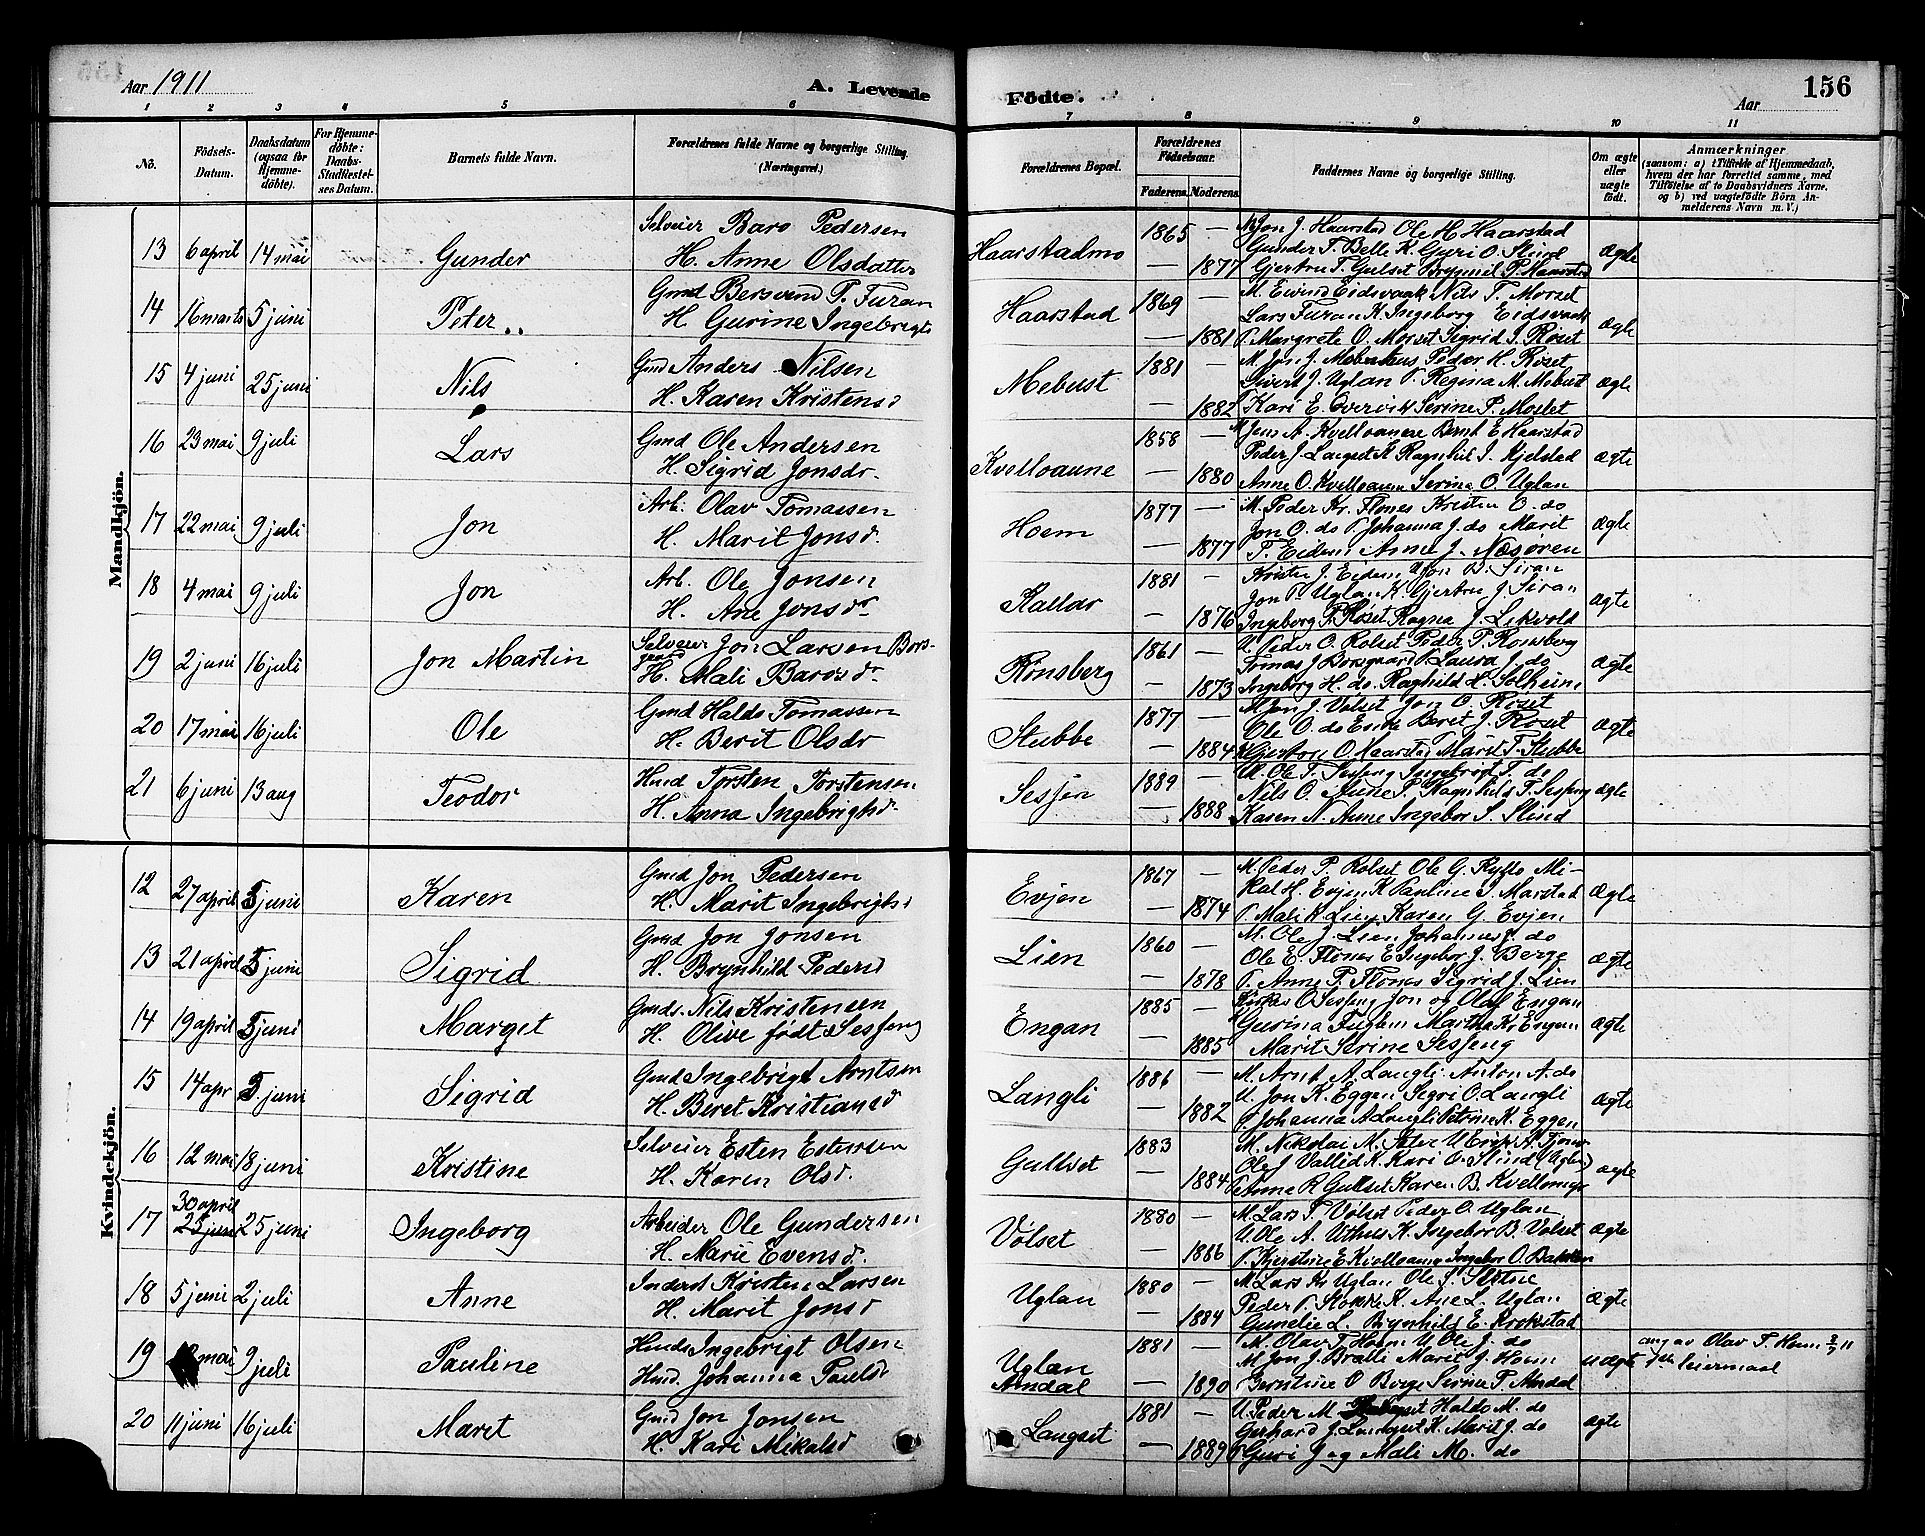 Aar 1911
A. Levende Födte.
156
Aar
1 2 3 4 5 6 7 8 9 10 11
No.
Födsels-Datum.
Daabsdatum (ogsaa for Hjemme-döbte).
For Hjemme-döbte: Daabs-Stadfæstelses Datum.
Barnets fulde Navn.
Forældrenes fulde Navne og borgerlige Stilling. (Næringsvei.)
Forældrenes Bopæl.
Forældrenes Födselsaar.
Faderens. Moderens.
Faddernes Navne og borgerlige Stilling.
Om ægte eller uægte födt.
Anmærkninger
(saasom: a) i Tilfælde af Hjemmedaab, hvem der har forrettet samme, med Tilföielse af to Daabsvidners Navne, og b) ved uægtefödte Börn Anmelderens Navn m. V.)
Mandkjön.
13 6 april 14 mai Gunder Selveier Baro Pedersen
H. Anne Olsdatter
Haarstadmo 1865 — 1877 ægte
M. Jon J. Haarstad Ole H. Haarstad
Gunder T. Belle K. Guri O. Slind
Gjertru T. Gulset Brynnil P. Haarstad
14 16 marts 5 juni Peter Gmd Bersvend P. Furan
H Gurine Ingebrigts
Haarstad 1869 — 1881 ægte
M. Eivind Eidsvaak Nils T. Morset
Lars Furan K. Ingeborg Eidsvaak
P. Margrete O. Morset Sigrid J. Röset
15 4 juni 25 juni Nils Gmd Anders Nilsen
H. Karen Kristensd
Mebust 1881 — 1882 ægte
M. Jon J. Mebust Peder H. Röset
Sivert J. Uglan P. Regina M. Mebust
Kari E. Overvik Serine P. Moslet
16 23 mai 9 juli Lars Gmd Ole Andersen
H. Sigrid Jonsdr.
Kvelloaune 1858 — 1880 ægte
Jens A. Kvelloaune Bernt E Haarstad
Peder J. Langset K Ragnhil J. Kjelstad
Anne O. Kvelloaune Serina O. Uglan
17 22 mai 9 juli Jon Arb. Olav Tomassen
H. Marit Jonsd.
Hoem 1877 — 1877 ægte
M. Peder Kr. Flönes Kristen O. do
Jon O. do P. Johanna J. do Marit
T. Eidem Anne J. Næsören
18 4 mai 9 juli Jon Arb. Ole Jonsen
H. Ane Jonsdr
Kallar 1881 — 1876 ægte
Krister J. Eidem Jon B. Siran
Jon P. Uglan K. Gjertru J. Siran
Ingeborg P. Röset Ragna J. Lekvold
19 2 juni 16 juli Jon Martin Selveier Jon Larsen Bors-
gaard
H. Mali Barosdr
Rönsberg 1861 — 1873 ægte
Peder O. Rolset Peder P. Rönsberg
Tomas J Borsgaard P. Laura J. do
Ingeborg H. do. Ragnhild H. Solheim
20 17 mai 16 juli Ole Gmd Haldo Tomassen
H. Berit Olsdr
Stubbe 1877 — 1884 ægte
M. Jon J. Volset Jon O. Röset
Ole O. do Beret J. Röset
O. Haarstad Marit T. Stubbe
21 6 juni 13 aug Teodor Hmd Torsten Torstensen
H. Anna Ingebrigtsd.
Sesseng 1889 — 1888 ægte
Ole T. Sesseng Ingebrigt T. do
Nils O. Aune P. Ragnhild T. Sesseng
Karen N. Aune Ingebor S. Slind
Kvindekjön.
12 27 april 5 juni Karen Gmd Jon Pedersen
H. Marit Ingebrigtsd
Evjen 1867 — 1874 ægte
M. Peder P. Rolset Ole G. Kyllo Mi-
kal H Evjen K Pauline J. Marstad
P. Mali K. Lien Karen G. Evjen
13 21 april 5 juni Sigrid Gmd Jon Jonsen
H. Brynhild Pedersd
Lien 1860 — 1878 ægte
M. Ole J. Lien Johannes J. do
Ole E. Flönes E Ingebor J. Berge
P. Anne P. Flönes Sigrid J. Lien
14 19 april 5 juni Marget Gmds. Nils Kristensen
H. Olive födt Sesseng
Engan 1885 — 1885 ægte
O Sesseng Jon og Olaf Engan
Gurina Fuglem Martha Kr. Engan
Marit Serine Sesseng
15 14 apr 5 juni Sigrid Gmd Ingebrigt Arntsen
H. Beret Kristiansd
Langli 1886 — 1882 ægte
M. Arnt A Langli Anton A. do
U. Jon K. Eggen Segri O. Langli
P. Johanna A Langli Petrine K. Eggen
16 12 mai 18 juni Kristine Selveier Esten Estensen
H. Karen Olsd.
Gullset 1883 — 1884 ægte
M. Nikolai M. Seter U Erik A. Tjönn
Ole J Vallid K. Kari O. Slind (Uglan)
Anne R. Gulset Karen B. Kvellomyr
17 30 april 25 juni 25 juni Ingeborg Arbeider Ole Gundersen
H. Marie Evensd.
Völset 1880 — 1886 ægte
M. Lars T. Völset Peder O. Uglan
U. Ole A. Uthus K. Ingebor B. Volset
P. Kjerstine E Kvelloaune Ingebor O. Bakken
18 5 juni 2 juli Anne Inderst Kristen Larsen
H. Marit Jonsd
Uglan 1880 — 1884 ægte
M. Lars Kr. Uglan Ole S. Slötne
Peder P. Stokke K. Ane L. Uglan
Gunelie L. Brynhild E. Krokstad
19 mai 9 juli Pauline Hmds Ingebrigt Olsen
Hmd. Johanna Paulsd
Uglan
Amdal 1881 — 1890 uægte
M. Olav T. Hoem U. Ole J. do
M. Jon J. Bralli Marit J. Hoem
Berntine O Berge Serine T. Mordal
ang av Olav T. Hoem 2/7 11
1ste leiermaal
20 11 juni 16 juli Maret Gmd Jon Jonsen
H. Kari Mikalsd
Langset 1881 — 1889 ægte
U. Peder M. Haldo M. do
Gerhard J. Langset K. Marit J. do
P Guri J og Mali M. do